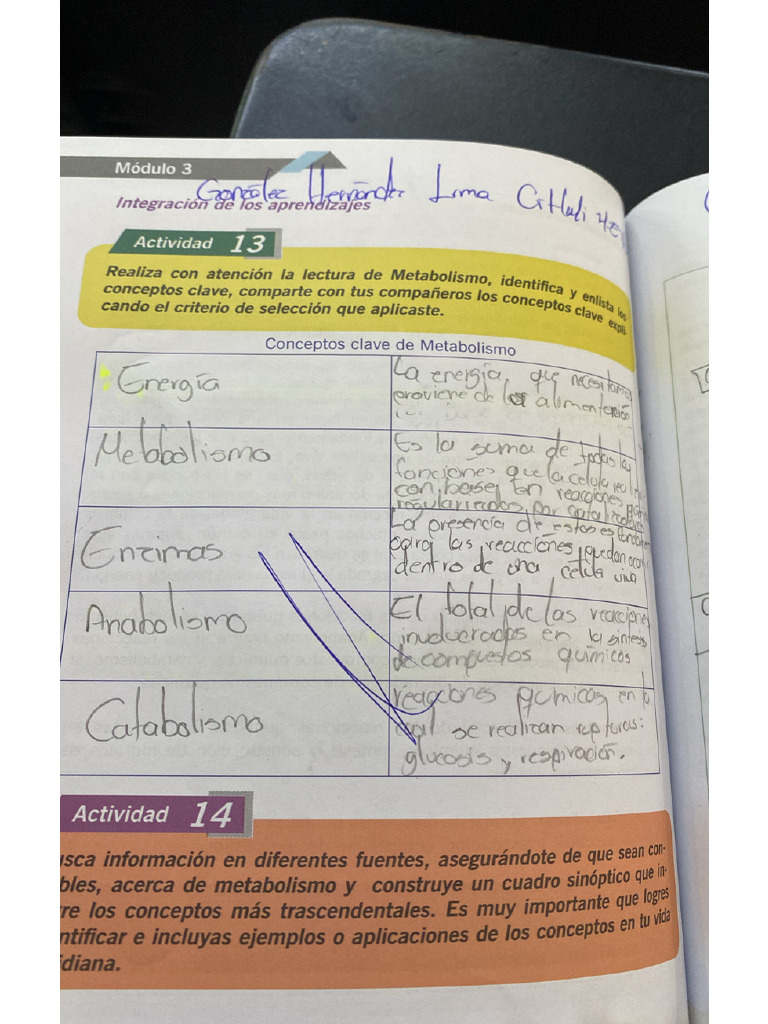 Módulo 3
González Hernández Irma Citlali
Integración de los aprendizajes
Actividad 13
Realiza con atención la lectura de Metabolismo, identifica y enlista los
conceptos clave, comparte con tus compañeros los conceptos clave expli-
cando el criterio de selección que aplicaste.
Conceptos clave de Metabolismo
Energía
La energía que necesitamos
proviene de la alimentación
Metabolismo
Es la suma de todas las
funciones que la celula
con base en reacciones
por
Enzimas
La presencia de estas es
para las reacciones puedan
dentro de una celula viva
Anabolismo
El total de las reacciones
involucradas en la sintesis
de compuestos químicos
Catabolismo
reacciones químicas en la
cual se realizan rupturas:
glucosis y respiración.
Actividad 14
usca información en diferentes fuentes, asegurándote de que sean con-
bles, acerca de metabolismo y construye un cuadro sinóptico que in-
re los conceptos más trascendentales. Es muy importante que logres
ntificar e incluyas ejemplos o aplicaciones de los conceptos en tu vida
idiana.